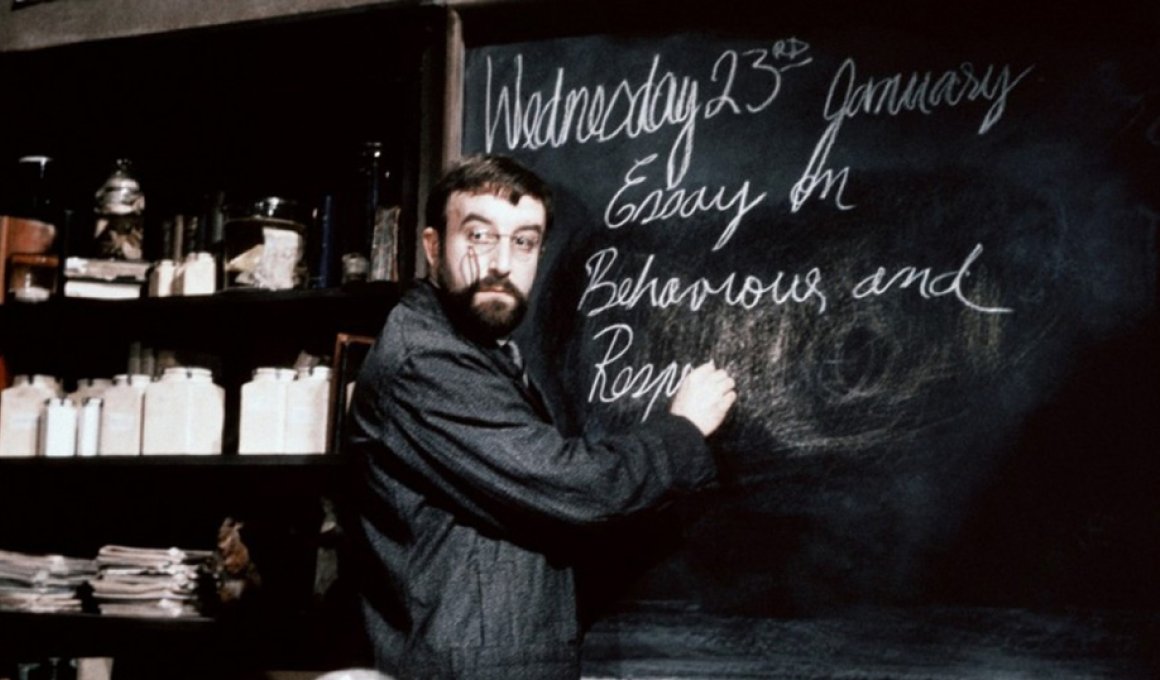 Wednesday 23RD January
Essay On
Behaviour and
Resp